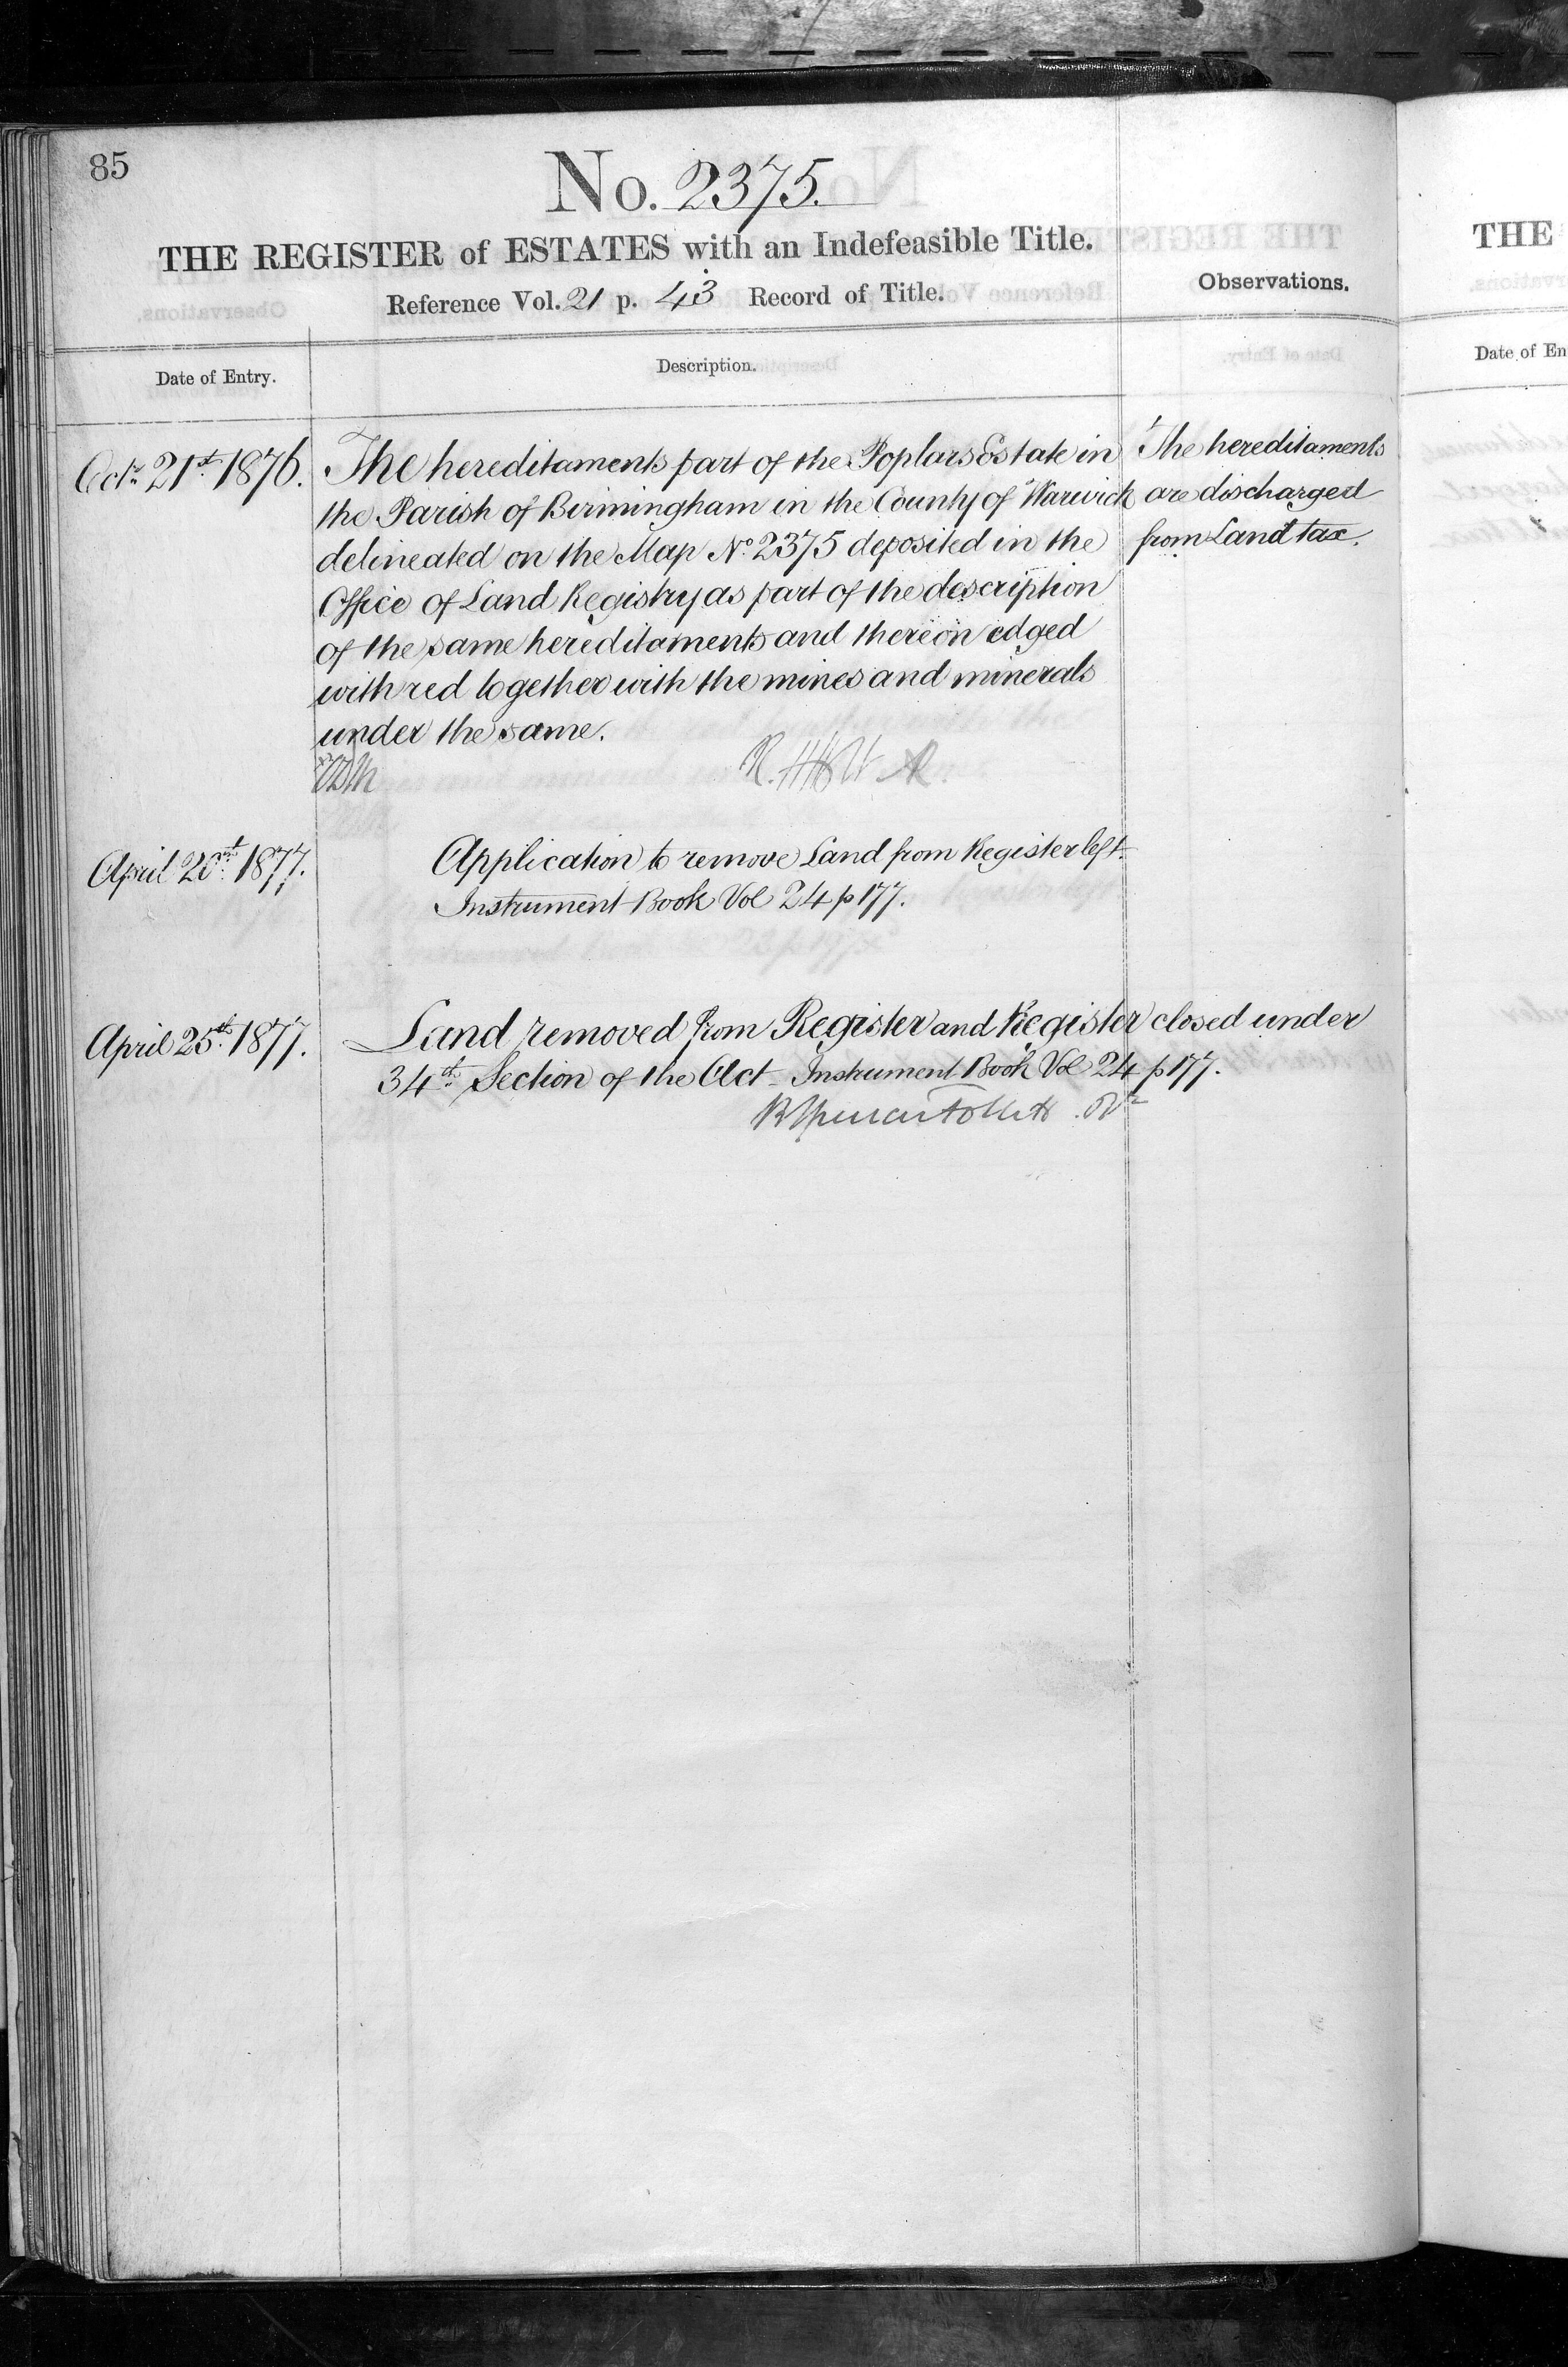 85
No. 2375.
THE REGISTER of ESTATES with an Indefeasible Title.
Reference Vol. 21 p. 43 Record of Title.
Observations.
Date of Entry.
Description.
Octr. 21st 1876.
The hereditaments part of the Poplars Estate in
the Parish of Birmingham in the County of Warwick
delineated on the Map No. 2375 deposited in the
Office of Land Registry as part of the description
of the same hereditaments and thereon edged
with red together with the mines and minerals
under the same.
The hereditaments
are discharged
from Land tax.
April 20th 1877.
Application to remove Land from Register left.
Instrument Book Vol 24 p 177.
April 25th 1877.
Land removed from Register and Register closed under
34th Section of the Act - Instrument Book Vol 24 p 177.
THE
Date of En